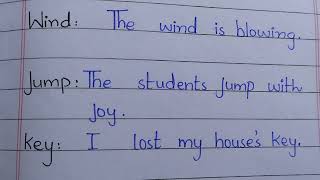 Wind: The wind is blowing.
Jump: The students jump with
joy.
Key: I lost my house's key.